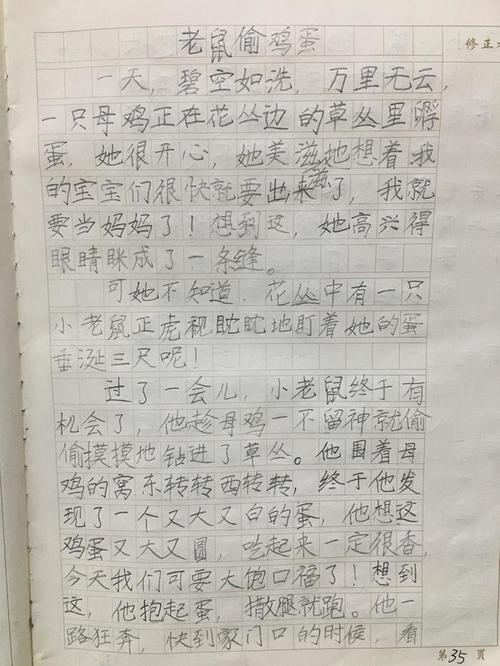 老鼠偷鸡蛋
修正
一天，碧空如洗，万里无云，
一只母鸡正在花丛边的草丛里孵
蛋，她很开心，她美滋滋地想着我
的宝宝们很快就要出来了，我就
要当妈妈了！想到这，她高兴得
眼睛眯成了一条缝。
可她不知道，花丛中有一只
小老鼠正虎视眈眈地盯着她的蛋
垂涎三尺呢！
过了一会儿，小老鼠终于有
机会了，他趁母鸡一不留神就偷
偷摸摸地钻进了草丛。他围着母
鸡的窝东转转西转转，终于他发
现了一个又大又白的蛋，他想这
鸡蛋又大又圆，吃起来一定很香，
今天我们可要大饱口福了！想到
这，他抱起蛋，撒腿就跑。他一
路狂奔，快到家门口的时候，看
第35页